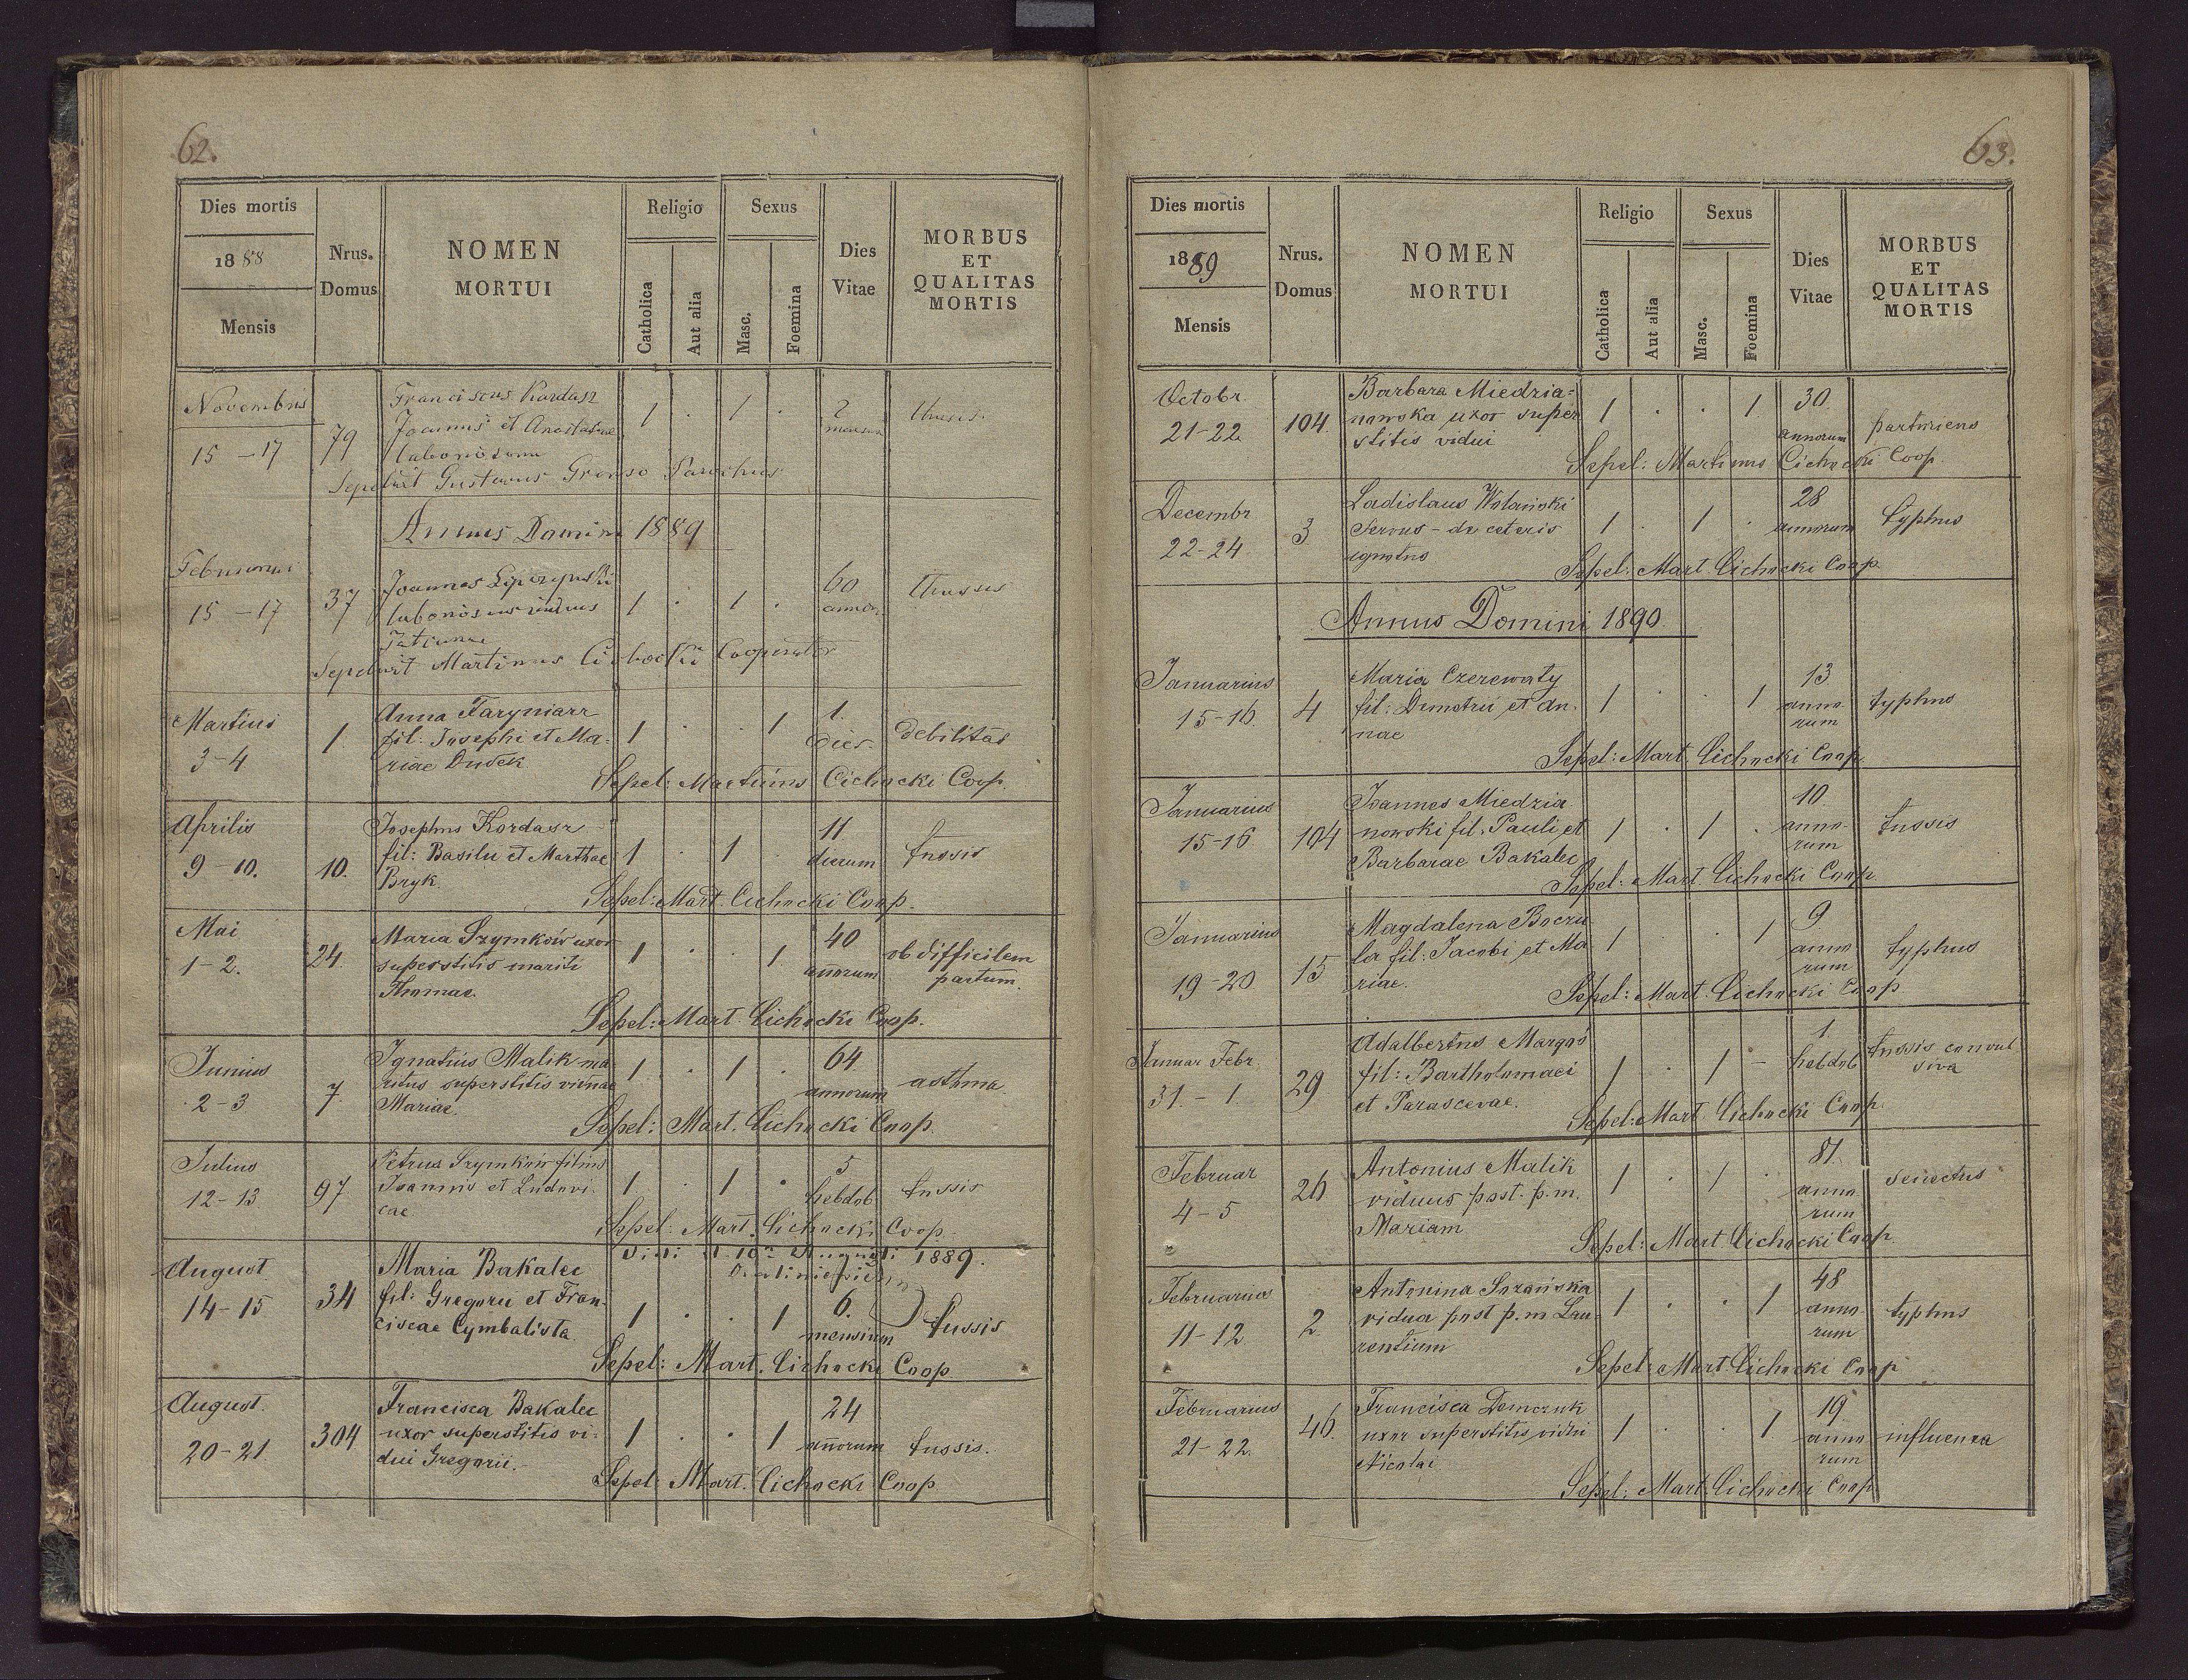 62.
Dies mortis
1888
Mensis
Nrus. Domus
NOMEN MORTUI
Religio
Catholica
Aut alia
Sexus
Masc.
Foemina
Dies Vitae
MORBUS ET QUALITAS MORTIS
Novembris 15-17 79 Franciscus Kordasz 1 . 1 . 2 mensium thussis
Joannis et Anastasiae
Sepelivit Gustavus Parochus
Annus Domini 1889
15-17 37 Joannes 1 . 1 . 60 annor. thussis
Sepelivit Martinus Cichocki Cooperator
Martius 3-4 1. Anna Taryniarz 1 . . 1 1. dies debilitas
fil: Josephi et Ma-
riae Dudek
Sepel: Martinus Cichocki Coop.
Aprilis 9-10. 10. Josephus Kordasz 1 . 1 . 11 dierum tussis
fil: Basilii et Marthae
Bryk.
Sepel: Mart. Cichocki Coop.
Mai 1-2. 24. Maria Szymków uxor 1 . . 1 40 annorum ob difficilem partum.
superstitis mariti
Thomae.
Sepel: Mart. Cichocki Coop.
Junius 2-3 7. Ignatius Malik ma- 1 . 1 . 64 annorum asthma
ritus superstitis viduae
Mariae.
Sepel: Mart. Cichocki Coop.
Julius 12-13 97. Petrus Szymków filius 1 . 1 . 5 hebdob tussis
Joannis et Ludovi-
cae
Sepel: Mart. Cichocki Coop.
Augusti 1889.
August 14-15 34 Maria Bakalec 1 . . 1 6. mensium tussis
fil: Gregorii et Fran-
ciscae Cymbalista
Sepel: Mart. Cichocki Coop.
August. 20-21 304 Francisca Bakalec 1 . . 1 24 annorum tussis.
uxor superstitis vi-
dui Gregorii.
Sepel: Mart. Cichocki Coop.
63.
Dies mortis
1889
Mensis
Nrus. Domus
NOMEN MORTUI
Religio
Catholica
Aut alia
Sexus
Masc.
Foemina
Dies Vitae
MORBUS ET QUALITAS MORTIS
Octobr. 21-22 104. Barbara Miedzia- 1 . . 1 30. annorum parturiens
nowska uxor super
stitis vidui
Sepel: Martinus Cichocki Coop.
Decembr 22-24 3. Ladislaus Wolański 1 . 1 . 28 annorum typhus
servus - de ceteris
ignotus
Sepel: Mart. Cichocki Coop.
Annus Domini 1890.
Januarius 15-16. 4 Maria Czerewaty 1 . . 1 13 anno-rum typhus
fil: Demetrii et An-
nae
Sepel: Mart. Cichocki Coop.
Januarius 15-16 104 Joannes Miedzia- 1 . 1 . 10 anno-rum tussis
nowski fil. Pauli et
Barbarae Bakalec
Sepel: Mart. Cichocki Coop.
Januarius 19-20 15 Magdalena Boczu- 1 . . 1 9 anno-rum typhus
la fil: Jacobi et Ma
riae.
Sepel: Mart. Cichocki Coop.
Januar Febr. 31. - 1. 29 Adalbertus Margos 1 . 1 - 1. hebdob tussis convul siva
fil: Bartholomaei
et Parascevae.
Sepel: Mart. Cichocki Coop.
Februar 4-5 26 Antonius Malik 1 . 1 . 81. anno-rum senectus
viduus post. p. m.
Mariam
Sepel: Mart. Cichocki Coop.
Februarius 11-12 2. Antonina Sozańska 1 . . 1 48 anno-rum typhus
vidua post p. m Lau-
rentium
Sepel: Mart. Cichocki Coop
Februarius 21-22. 46. Francisca Demczuk 1 . . 1 19 anno-rum influenza
uxor superstitis vidui
Nicolai
Sepel: Mart. Cichocki Coop.